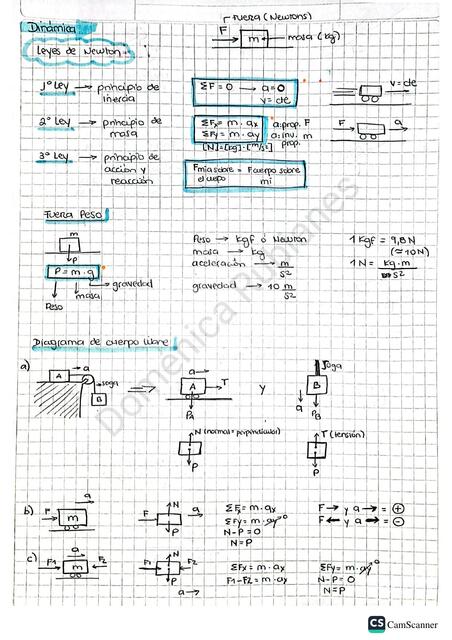 Dinámica
Leyes de Newton.
fuerza (Newtons)
F m masa (kg)
1º Ley → principio de inercia
ΣF = 0 → a = 0
v = cte
v = cte
2º Ley → principio de masa
ΣFx = m · ax a: prop. F
ΣFy = m · ay a: inv. m
prop.
[N] = [kg] · [m/s²]
F a
3º Ley → principio de acción y reacción
F mia sobre el cuerpo = F cuerpo sobre mi
Fuerza Peso
m
P
P = m · g
gravedad
masa
Peso
Peso → kgf ó Newton
masa → kg
aceleración → m/s²
gravedad → 10 m/s²
1 Kgf = 9,8 N
(≈10N)
1 N = kg · m/s²
Diagrama de cuerpo libre
a) A a soga B
a A T PA y soga B a PB
N (normal = perpendicular) P
T (tensión) P
b) F m a
F N P a
ΣFx = m · ax
ΣFy = m · ay 0
N - P = 0
N = P
F → y a → = +
F ← y a → = -
c) F1 m F2 a
F1 N F2 P
a →
ΣFx = m · ax
F1 - F2 = m · ax
ΣFy = m · ay 0
N - P = 0
N = P
Domenica Rubianes
CS CamScanner